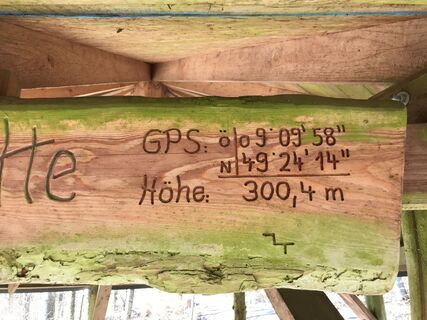 tte
GPS: ö/o 9° 09' 58"
N 49° 24' 14"
Höhe: 300,4 m